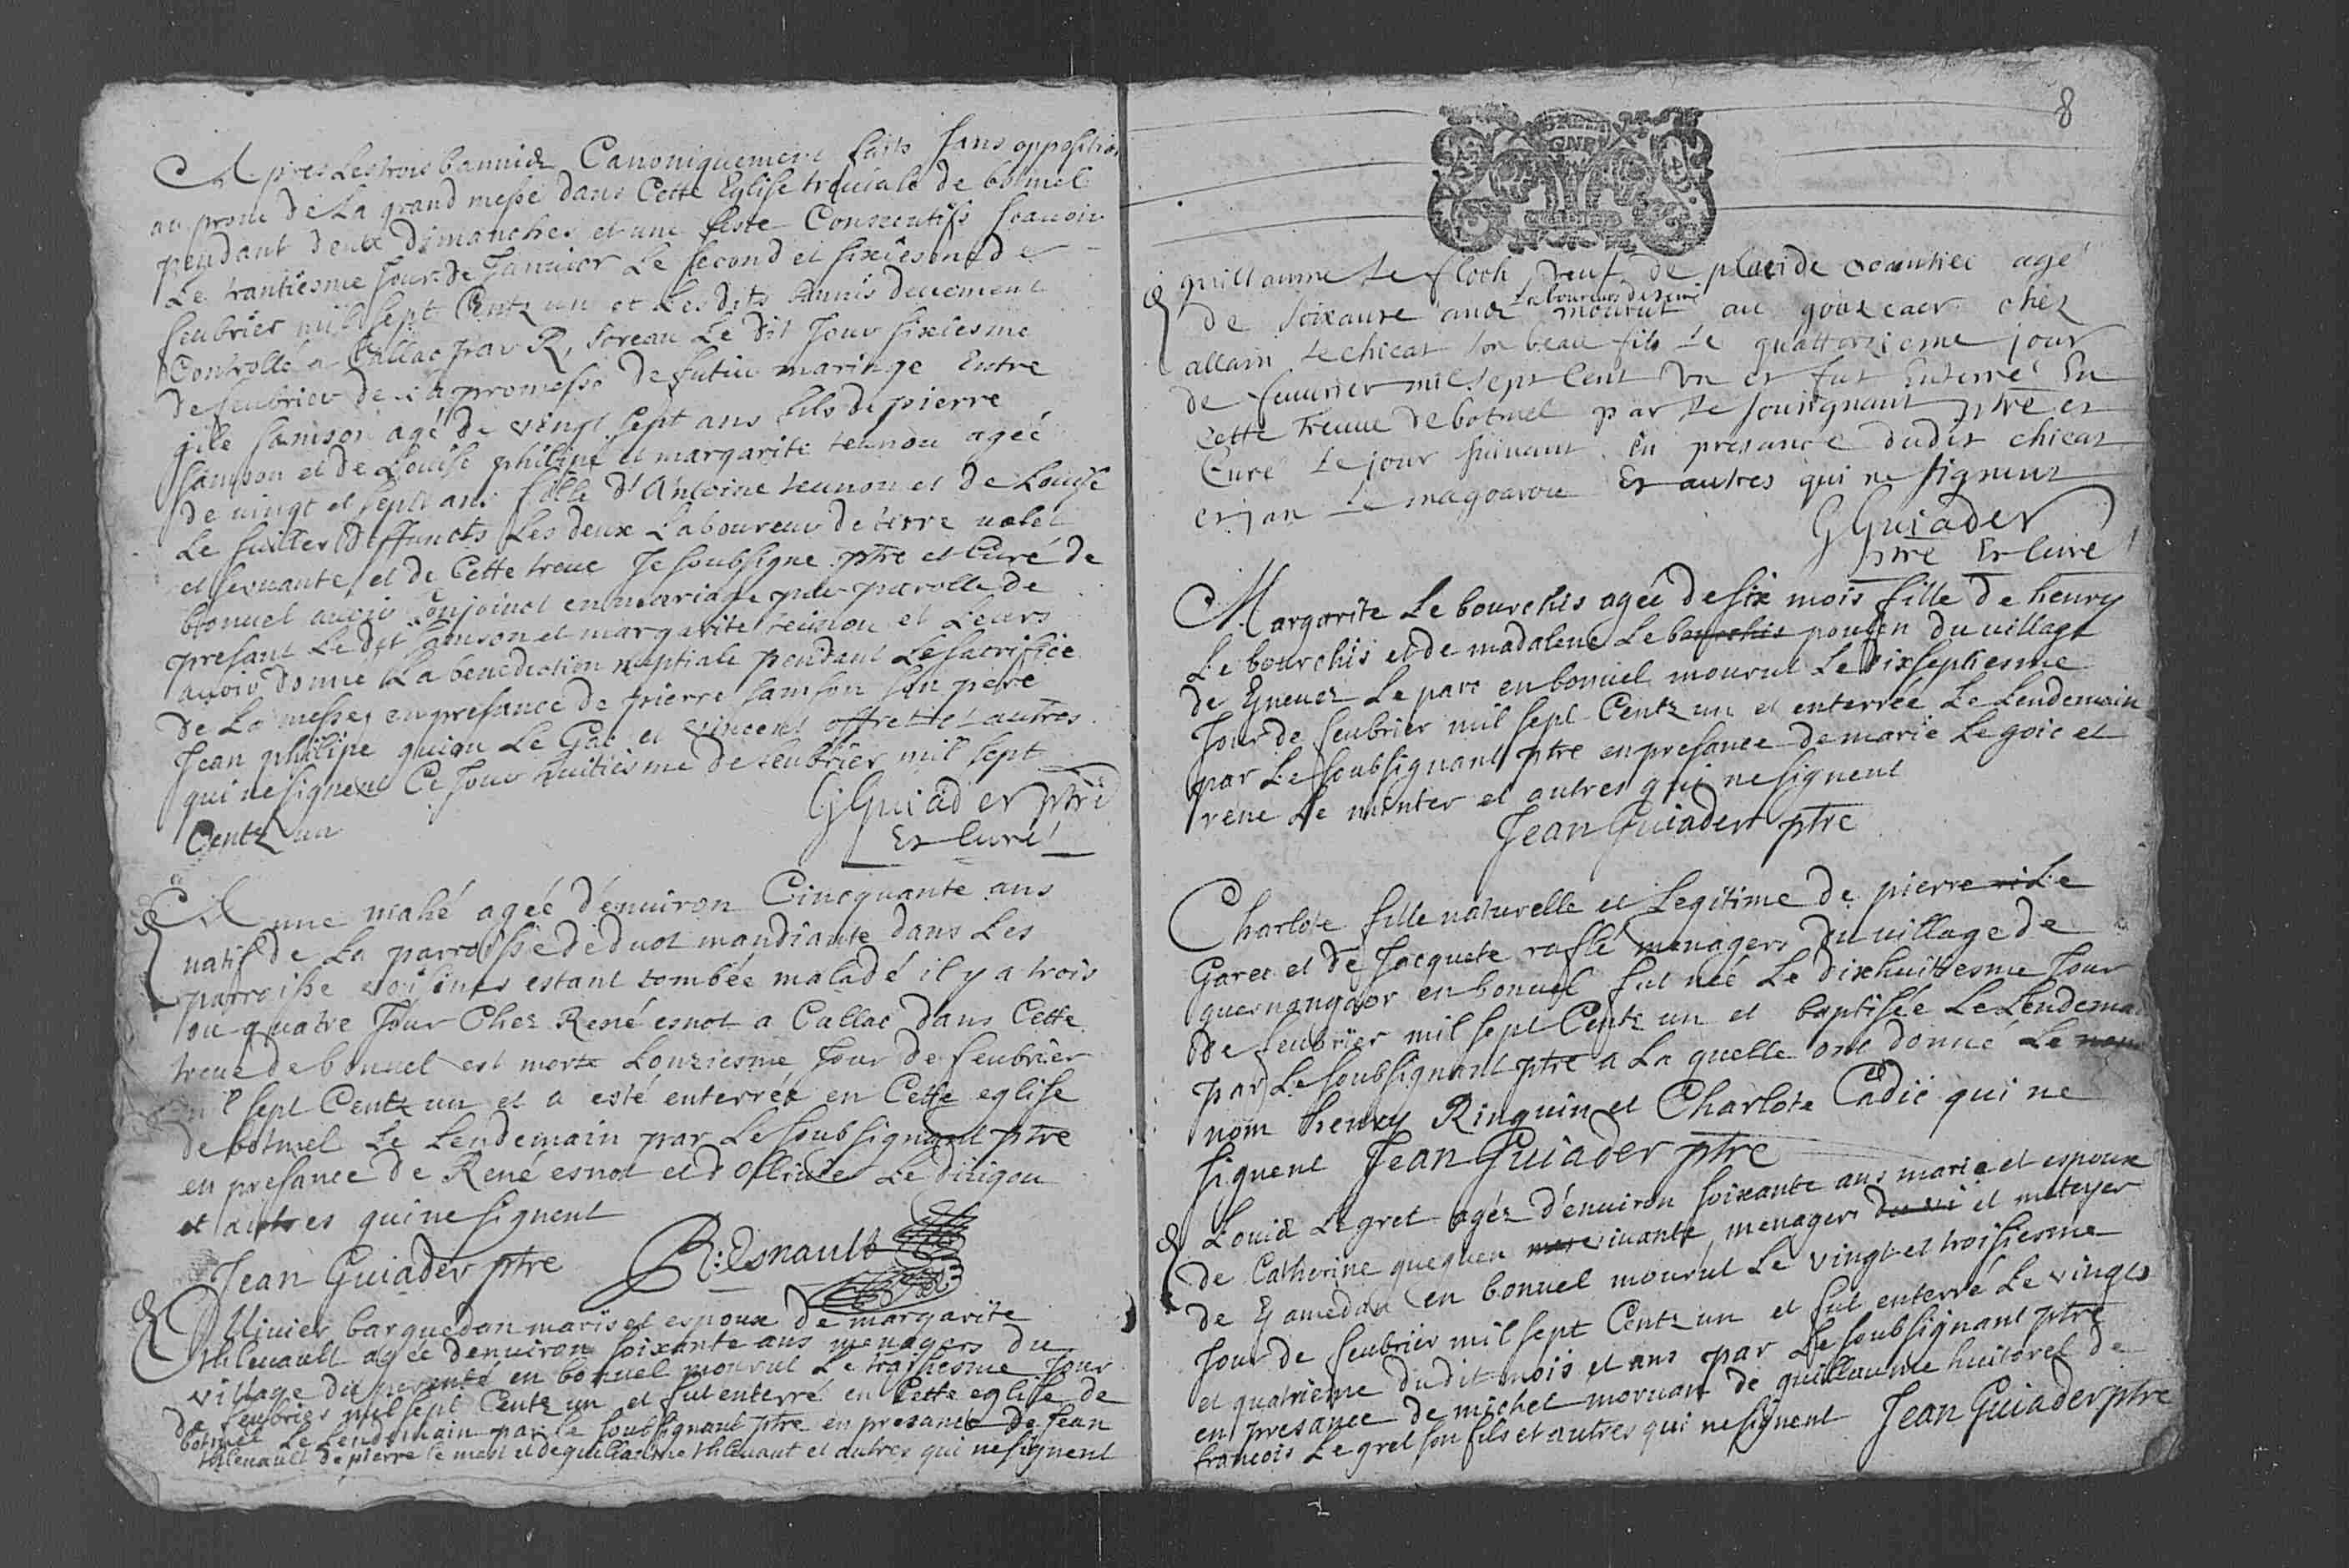 Apres Les trois bannies Canoniquement faits sans opposition
au prone de La grand messe dans Cette Eglise treuiale de botmel
pendant deux dimanches et une feste Consecutifs scauoir
Le trantiesme Jour de Januier Le second et sixiesme de
feubrier mil sept Centz un et Les dits bannis deuement
Controllé a Callac par R, Loreau Le dit Jour sixiesme
de feubrier de La promesse de futur mariage Entre
gile samson agé de vingt sept ans fils de pierre
samson et de Louise philipe et margarite teunou ageé
de uingt et sept ans fille d'Antoine teunou et de Louise
Le deffuncts Les deux Laboureur de terre valet
et seruante, et de Cette treue Je soubsigne ptre et Curé de
bonuel auoir Conjoinct en mariage par parolle de
presant Le dit samson et margarite teunou et Leurs
auoir donne La benediction nuptiale pendant Le sacrifice
de La messe, en presance de pierre samson son pere
Jean philipe guion Le Gac et vincent offret et autres
qui ne signent Ce Jour huitiesme de feubrier mil sept
Centz un
GGuiader ptre
Et Curé
Anne mahé ageé d'enuiron Cincquante ans
natif de La parroisse de duot mandiante dans Les
parroisse voisines estant tombée malade il y a trois
ou quatre Jour Chez René esnot a Callac dans Cette
treue de bonuel est morte Lonziesme Jour de feubrier
mil sept Centz un et a esté enterrée en Cette eglise
de botmel Le Lendemain par Le soubsignant ptre
en presance de René esnot et d'Olliuier Le diligou
et autres qui ne signent
Jean Guiader ptre R: Esnault
Olliuier barguedan maris et espoux de margarite
thleuault agée denuiron soixante ans menagers du
village du en bonuel mourut Le traisiesme Jour
de feubrier mil sept Centz un et fut enterré en Cette eglise de
botmel Le Lendemain par Le soubsignant ptre en presance de Jean
thleuault de pierre Le mest et de guillaume thleuaut et autres qui ne signent
8
guillaume Le floch veuf de placide agé
de soixante ans Laboureur de terre mourut au gouzcaer chez
allain Le chicas son beau fils Le quattorzieme jour
de feuurier mil sept Cent Vn et fut Enterré En
Cette treuue de botmel par Le sousignant ptre et
Curé Le jour suiuant en presance dudit chicas
et jan Le magoarou Et autres qui ne signent
GGuiader
ptre Et Curé
Margarite Le bourchis ageé de six mois fille de henry
Le bourchis et de madalene Le bourchis poulen du uillage
de Le parc en bonuel mourut Le dixseptiesme
Jour de feubrier mil sept Centz un et enterrée Le Lendemain
par Le soubsignant ptre en presance de marie Le goic et
rene Le et autres qui ne signent
Jean Guiader ptre
Charlote fille naturelle et Legitime de pierre Le
Garec et de Jacquete raflé menagers du uillage de
quesnangaor en bonuel fut neé Le dixhuittesme Jour
de feubrier mil sept Centz un et baptisée Le Lendemai
par Le soubsignant ptre a La quelle ont donné Le nom
nom henry Rinquin et Charlote Cadic qui ne
signent Jean Guiader ptre
Louis Le gret agéz d'enuiron soixante ans marie et espoux
de Catherine gueguen viuante menagers et meteyer
de en bonuel mourut Le vingt et troisiesme
Jour de feubrier mil sept Centz un et fut enterré Le vingts
et quatrieme du dit mois et ans par Le soubsignant ptre
en presance de michel moruan de guillaume huitorel de
francois Le gret son fils et autres qui ne signent Jean Guiader ptre